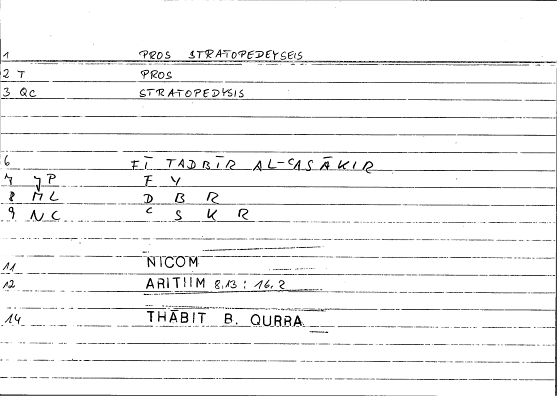 1 PROS STRATOPEDEYSEIS
2 T PROS
3 QC STRATOPEDYSIS
6 FĪ TADBĪR AL-ᶜASĀKIR
7 JP F Y
8 ML D B R
9 NC ᶜ S K R
11 NICOM
12 ARITIIM 8,13 : 16,2
14 THĀBIT B. QURRA